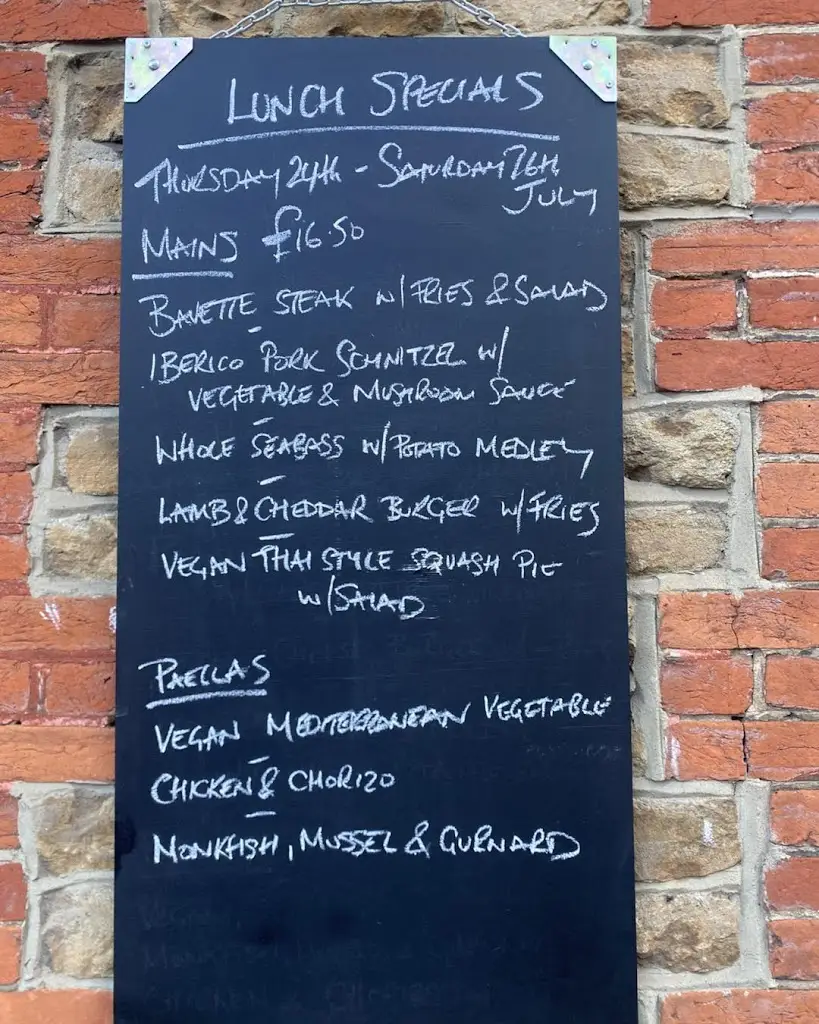 LUNCH SPECIALS
THURSDAY 24th - SATURDAY 26th
JULY
MAINS £16.50
BAVETTE STEAK W/ FRIES & SALAD
IBERICO PORK SCHNITZEL W/
VEGETABLE & MUSHROOM SAUCE
WHOLE SEABASS W/ POTATO MEDLEY
LAMB & CHEDDAR BURGER W/ FRIES
VEGAN THAI STYLE SQUASH PIE
W/ SALAD
PAELLAS
VEGAN MEDITERRANEAN VEGETABLE
CHICKEN & CHORIZO
MONKFISH, MUSSEL & GURNARD